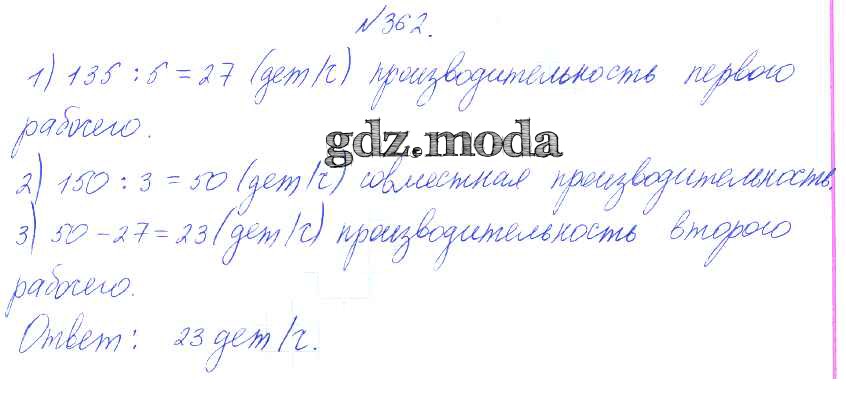 №362.
1) 135 : 5 = 27 (дет/ч) производительность первого
рабочего.
gdz.moda
2) 150 : 3 = 50 (дет/ч) совместная производительность.
3) 50 - 27 = 23 (дет/ч) производительность второго
рабочего.
Ответ: 23 дет/ч.